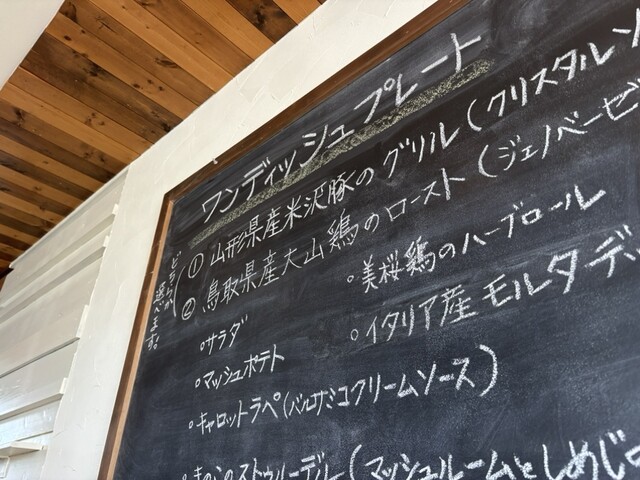 ワンディッシュプレート
① 山形県産米沢豚のグリル(クリスタルソ
② 鳥取県産大山鶏のロースト(ジェノベーゼ
選べます。
◦サラダ
◦マッシュポテト
◦キャロットラペ(バルサミコクリームソース)
◦美桜鶏のハーブロール
◦イタリア産モルタデッ
◦きのこのストゥルーデル(マッシュルームとしめじ